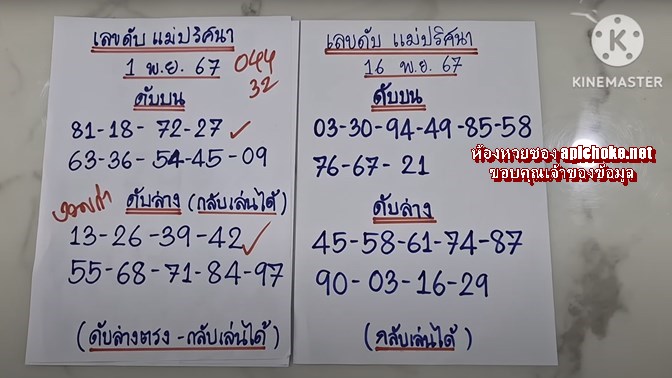 เลขดับ แม่ปริศนา
1 พ.ย. 67
044
32
ดับบน
81-18-72-27 ✓
63-36-54-45-09
ดับล่าง (กลับเล่นได้)
13-26-39-42 ✓
55-68-71-84-97
(ดับล่างตรง-กลับเล่นได้)
เลขดับ แม่ปริศนา
16 พ.ย. 67
ดับบน
03-30-94-49-85-58
76-67-21
ดับล่าง
45-58-61-74-87
90-03-16-29
(กลับเล่นได้)
K
KINEMASTER
ห้องหวยซอง apichoke.net
ขอบคุณเจ้าของข้อมูล